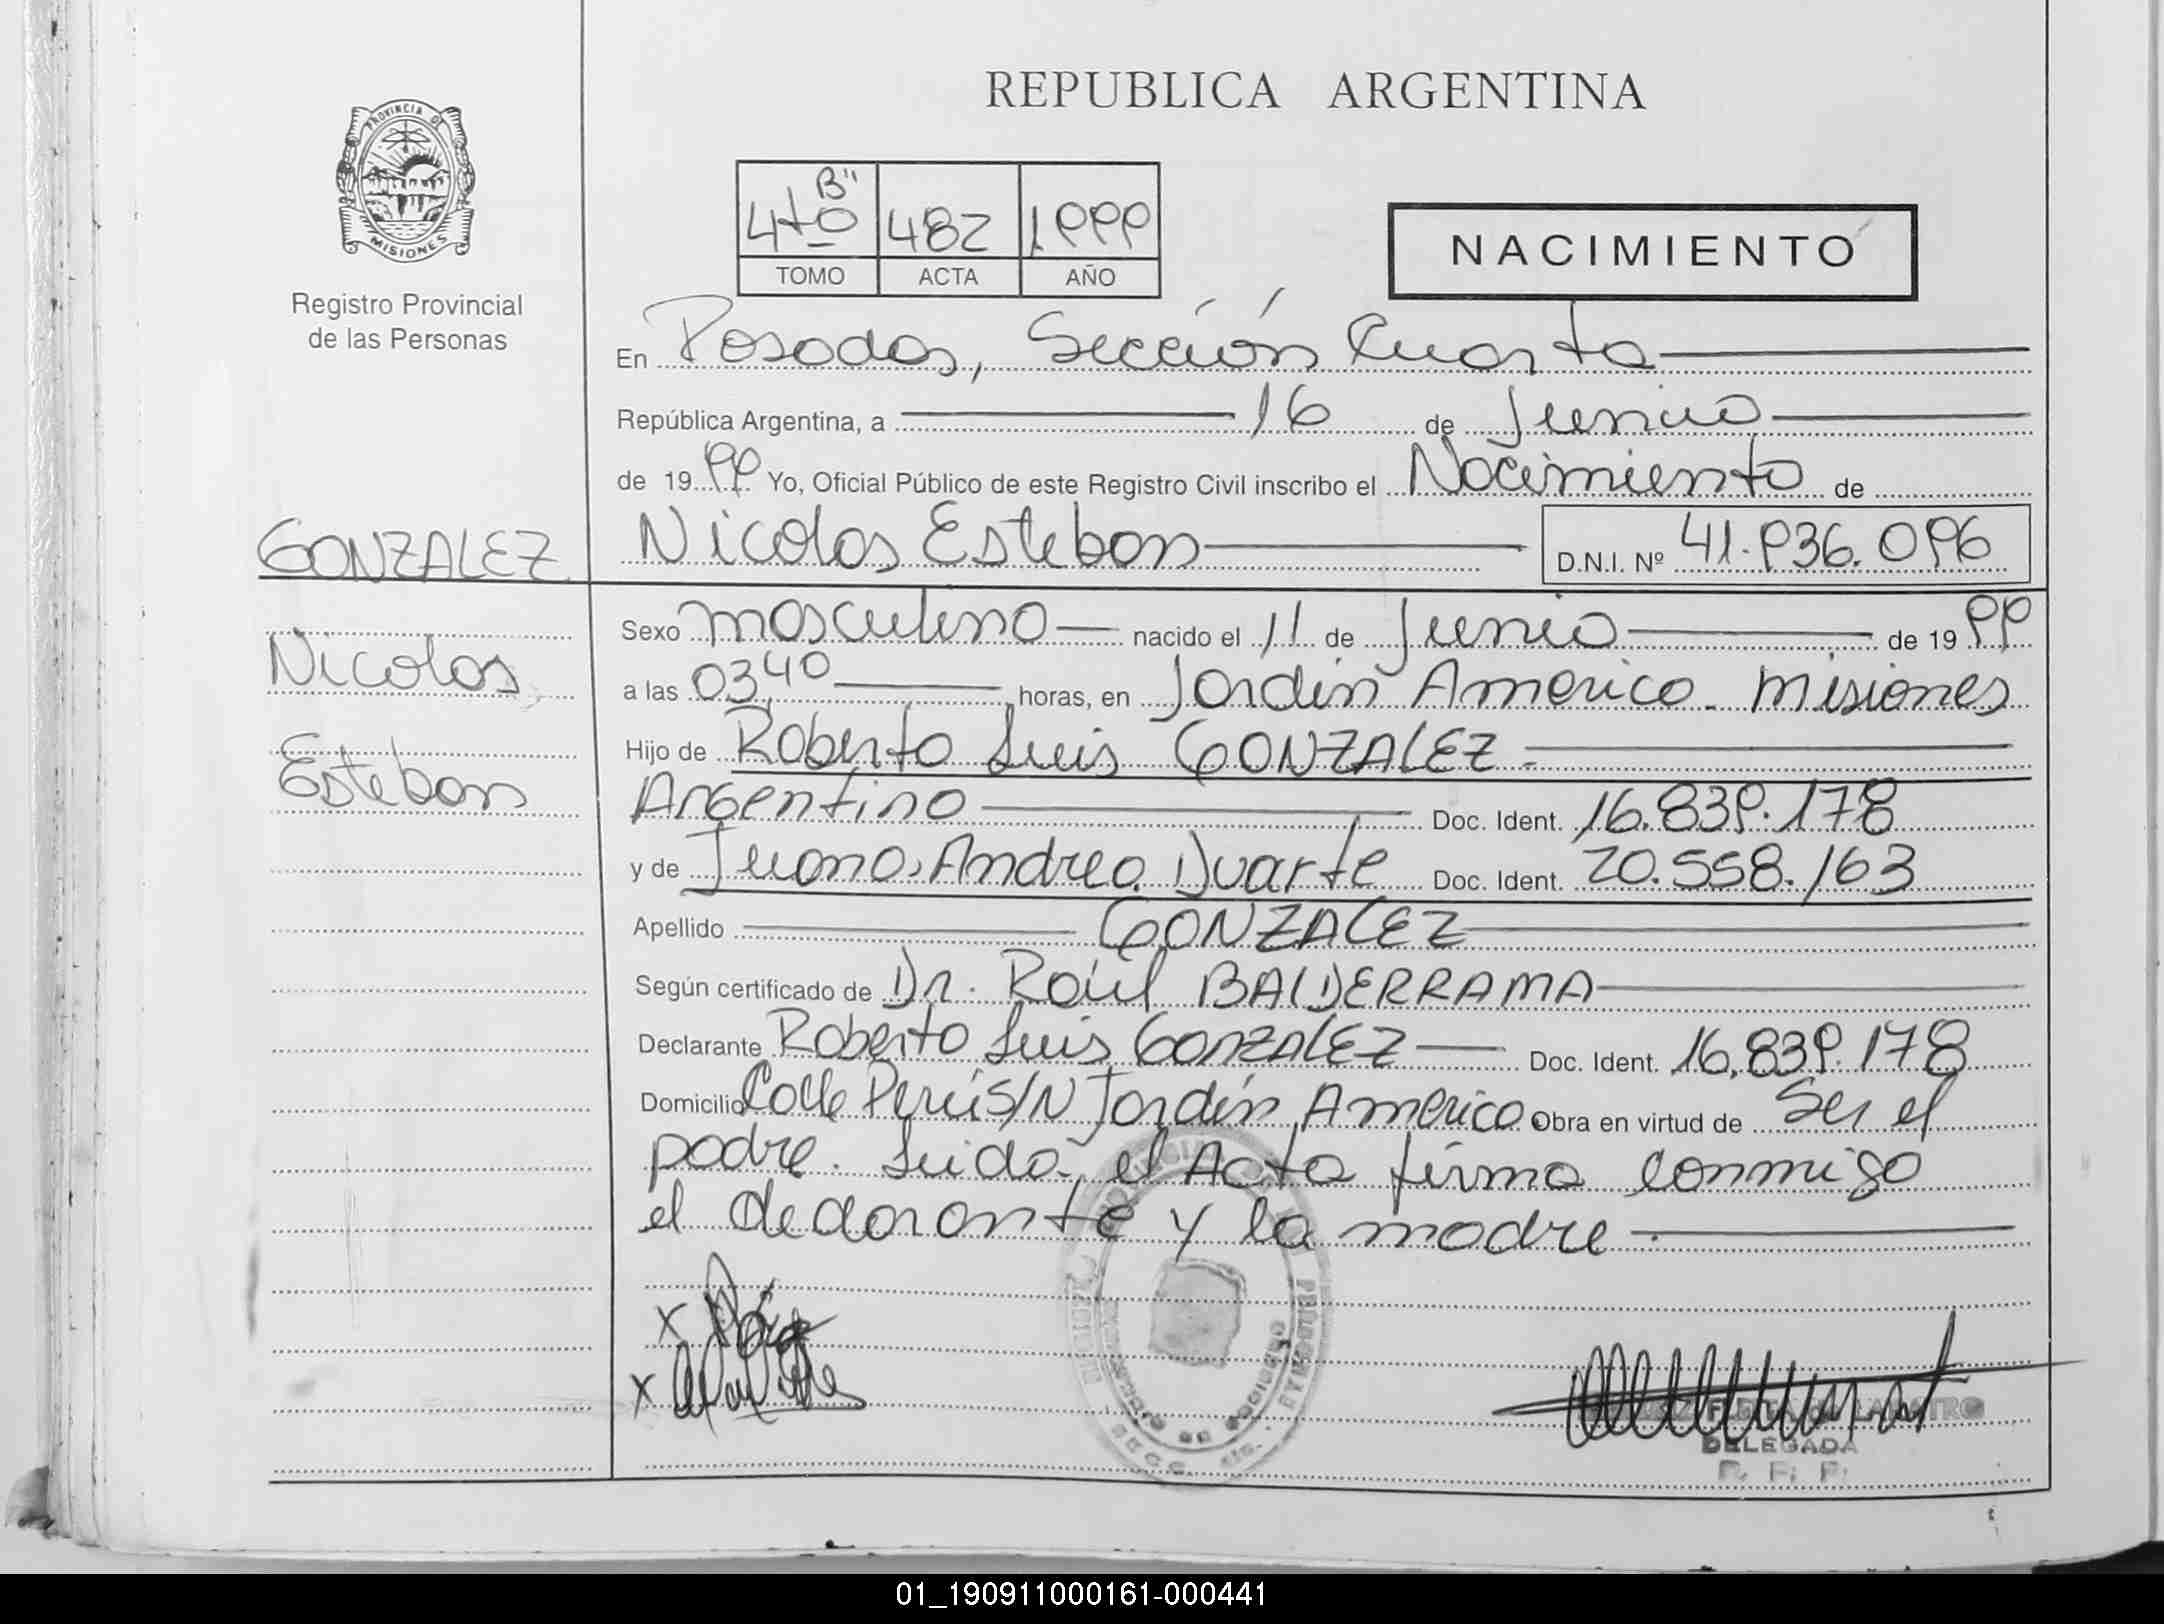 REPUBLICA ARGENTINA
PROVINCIA DE
MISIONES
Registro Provincial
de las Personas
4to B" 482 1.999
TOMO ACTA AÑO
NACIMIENTO
En Posadas, Sección Cuarta
República Argentina, a 16 de Junio
de 1999 Yo, Oficial Público de este Registro Civil inscribo el Nacimiento de
GONZALEZ
Nicolas Esteban D.N.I. Nº 41.936.096
Nicolas
Esteban
Sexo masculino nacido el 11 de Junio de 1999
a las 03,40 horas, en Jardín America - Misiones
Hijo de Roberto Luis GONZALEZ -
Argentino Doc. Ident. 16.839.178
y de Juana Andrea Duarte Doc. Ident. 20.558.163
Apellido GONZALEZ
Según certificado de Dr. Raúl BALDERRAMA
Declarante Roberto Luis GONZALEZ Doc. Ident. 16.839.178
Domicilio Calle Perú S/N Jardín America Obra en virtud de Ser el
padre. Leida el Acta firma conmigo
el declarante y la madre.
x
x
DELEGADA
R. P. P.
01_190911000161-000441